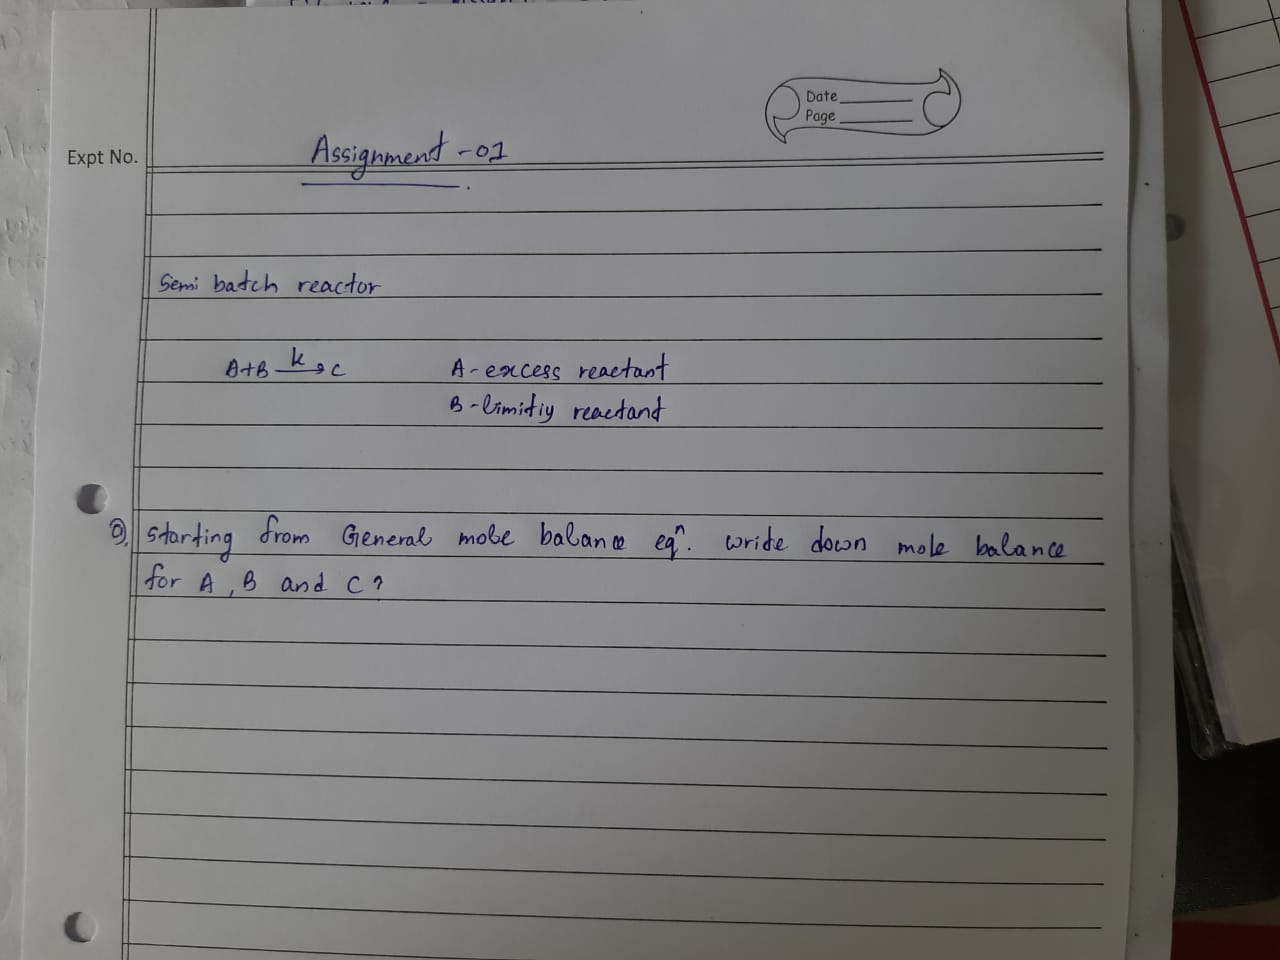 Date
Page
Expt No.
Assignment - 01
Semi batch reactor
A+B k→ C A - excess reactant
B - limitiy reactant
Q. Starting from General mole balance eqn. write down mole balance
for A, B and C?